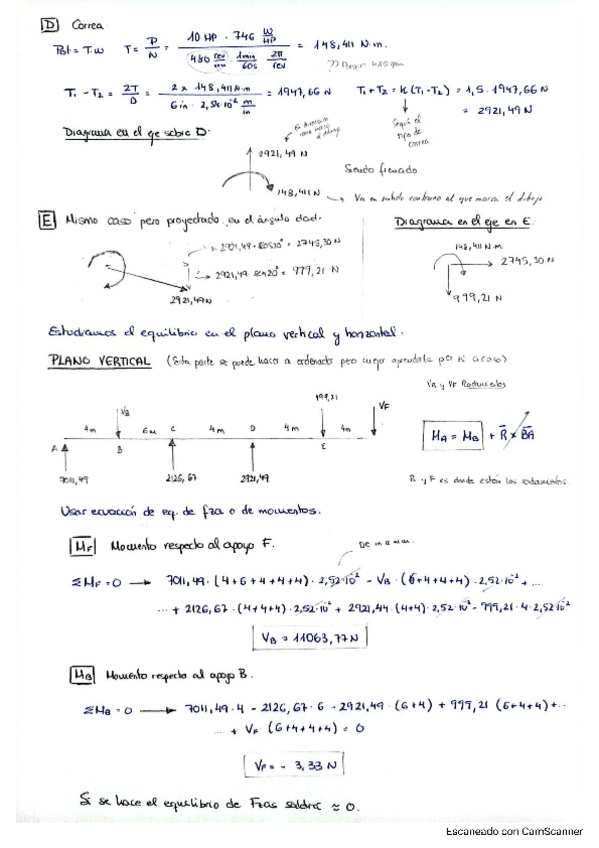 D Correa
Pot = T.ω T = P/N = (10 HP · 746 W/HP) / (480 rev/min · 1min/60s · 2π/rev) = 148,411 N·m.
T₁ - T₂ = 2T/D = (2 x 148,411 N·m) / (6 in · 2,54·10⁻² m/in) = 1947,66 N T₁+T₂ = K (T₁-T₂) = 1,5 · 1947,66 N
= 2921,49 N
Según el tipo de correa
Diagrama en el eje sobre D:
2921,49 N
Siendo frenado
148,411 N → Va en sentido contrario al que marca el dibujo
E Mismo caso pero proyectado en el ángulo dad. Diagrama en el eje en E.
2921,49 · cos20° = 2745,30 N
2921,49 · sen20° = 999,21 N
2921,49 N
148,411 N·m
2745,30 N
999,21 N
Estudiamos el equilibrio en el plano vertical y horizontal.
PLANO VERTICAL (Esta parte se puede hacer a ordenador pero mejor aprenderla por si acaso)
VB y VF Rodamientos
VB 999,21 VF
4m 6m C 4m D 4m 4m
A B E
7011,49 2126,67 2921,49
MA = MB + R x BA
B y F es donde están los rodamientos.
Usar ecuación de eq. de fza o de momentos.
MF Momento respecto al apoyo F.
De in a m.
ΣMF=0 → 7011,49 · (4+6+4+4+4) · 2,52·10⁻² - VB · (6+4+4+4) · 2,52·10⁻² + ...
... + 2126,67 · (4+4+4) · 2,52·10⁻² + 2921,49 (4+4) · 2,52·10⁻² - 999,21 · 4 · 2,52·10⁻²
VB = 11063,77 N
MB Momento respecto al apoyo B.
ΣMB = 0 → 7011,49 · 4 - 2126,67 · 6 - 2921,49 · (6+4) + 999,21 (6+4+4) + ...
... + VF (6+4+4+4) = 0
VF = - 3,33 N
Si se hace el equilibrio de Fzas saldrá ≈ 0.
Escaneado con CamScanner